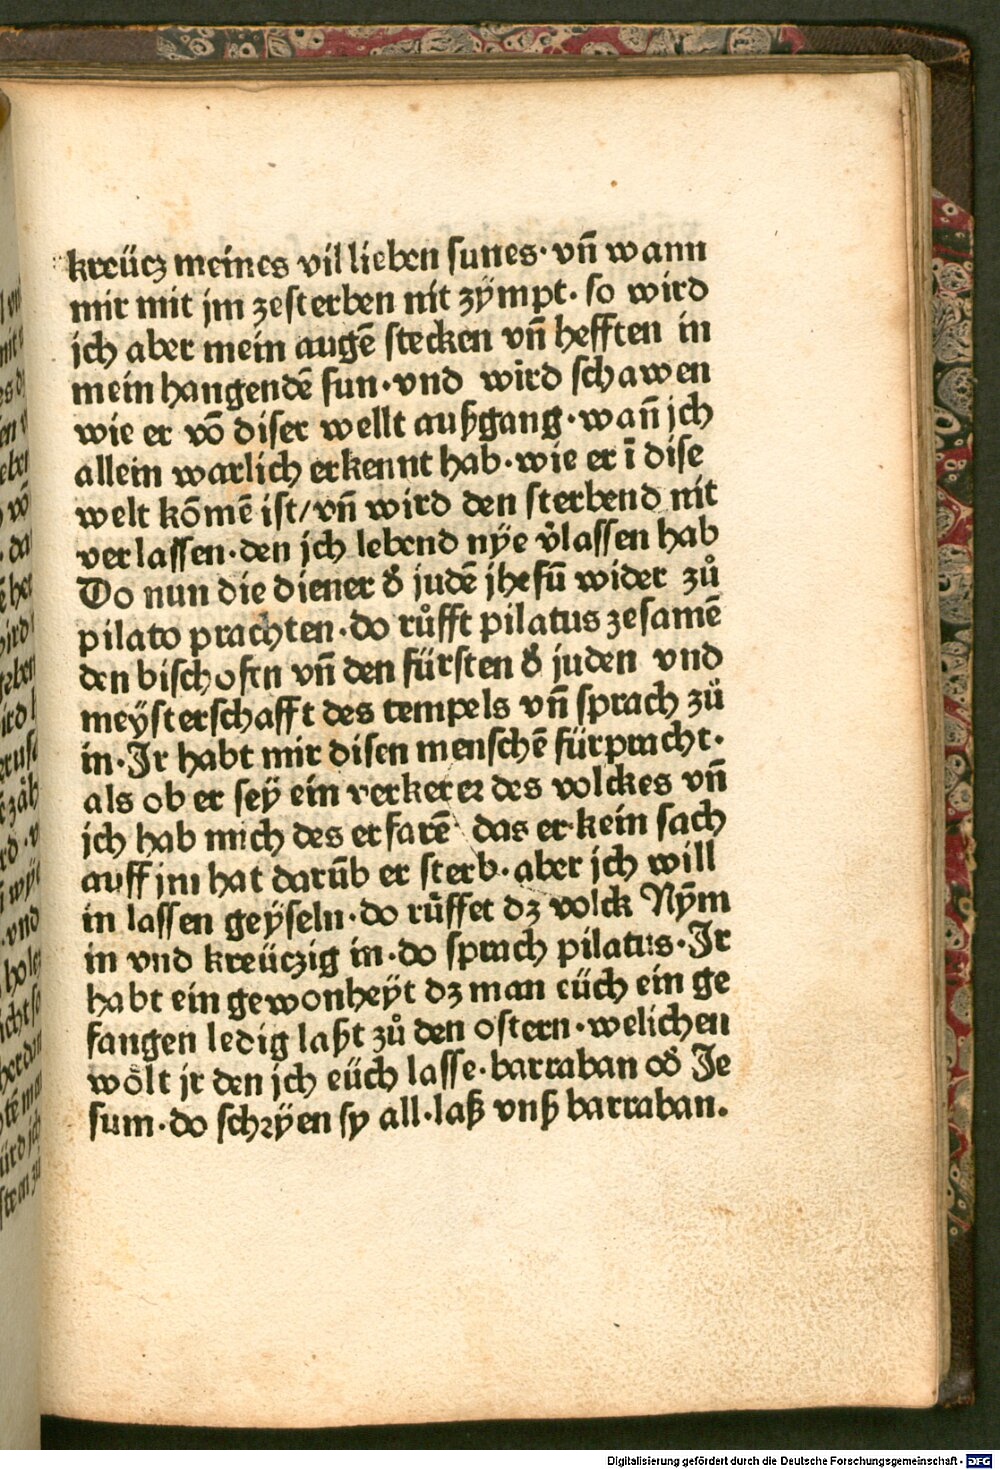 kreücz meines vil lieben sunes· vn̄ wann
mir mit jm zesterben nit zympt· so wird
jch aber mein augē stecken vn̄ hefften in
mein hangendē sun·vnd wird schawen
wie er vō diser wellt außgang·wan̄ jch
allein warlich erkennt hab·wie er ī dise
welt kōmē ist/vn̄ wird den sterbend nit
verlassen·den jch lebend nÿe v̓lassen hab
Do nun die diener d̓ judē jhesū wider zů
pilato prachten·do růfft pilatus zesamē
den bischofen vn̄ den fürsten d̓ juden vnd
meÿsterschafft des tempels vn̄ sprach zů
in·Ir habt mir disen menschē fürpracht·
als ob er seÿ ein verkerer des volckes vn̄
jch hab mich des erfarē das er kein sach
auff jm hat darūb er sterb·aber jch will
in lassen geÿseln·do růffet dz volck Nȳm
in vnd kreüczig in·do sprach pilatus·Ir
habt ein gewonheÿt dz man eüch ein ge
fangen ledig laßt zů den ostern·welichen
wölt jr den jch eüch lasse·barraban od̓ Je
sum·do schrÿen sy all·laß vnß barraban.
Digitalisierung gefördert durch die Deutsche Forschungsgemeinschaft - DFG